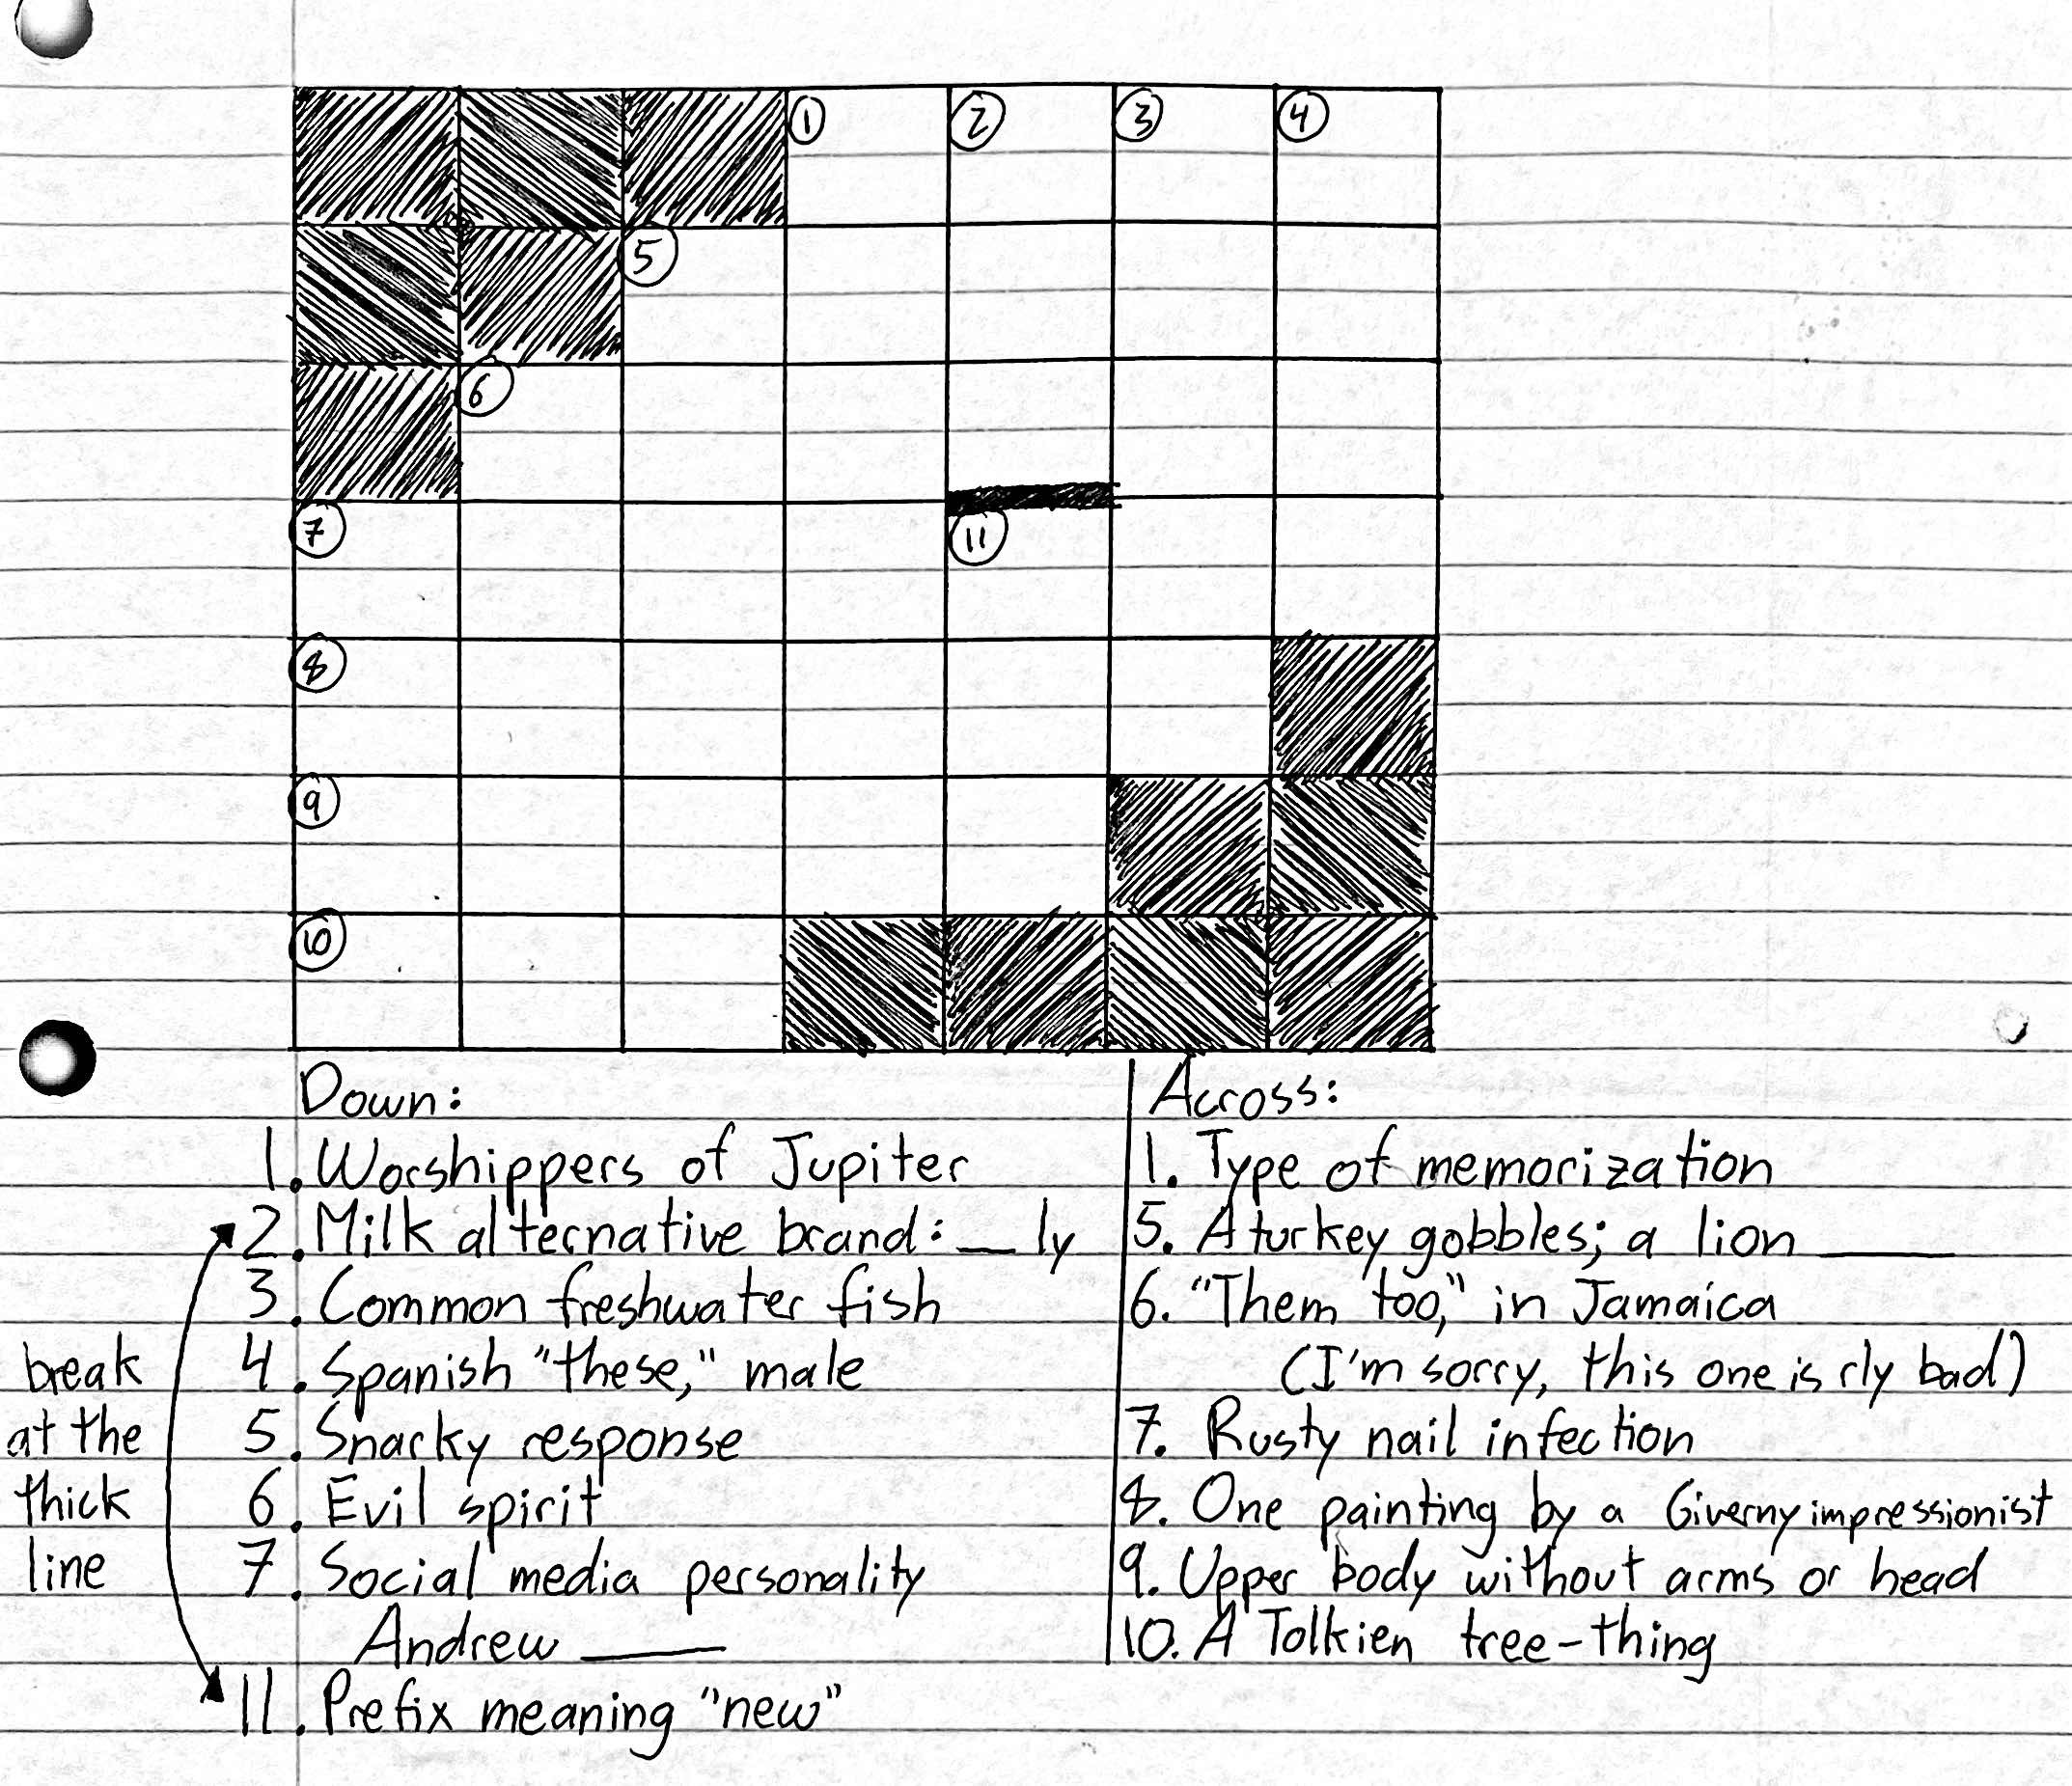 1 2 3 4
5
6
7 11
8
9
10
Down:
1. Worshippers of Jupiter
2. Milk alternative brand: __ ly
3. Common freshwater fish
4. Spanish "these," male
5. Snarky response
6. Evil spirit
7. Social media personality
Andrew ____
11. Prefix meaning "new"
break
at the
thick
line
Across:
1. Type of memorization
5. A turkey gobbles; a lion ____
6. "Them too," in Jamaica
(I'm sorry, this one is rly bad)
7. Rusty nail infection
8. One painting by a Giverny impressionist
9. Upper body without arms or head
10. A Tolkien tree-thing